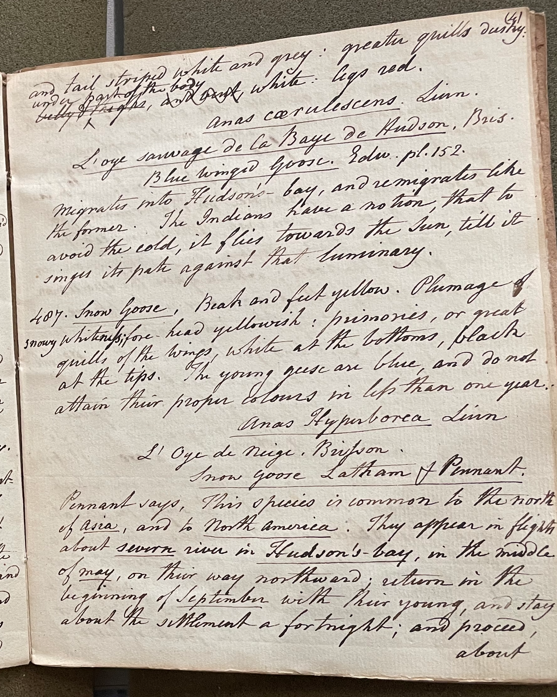 (4)
and tail striped white and grey: greater quills dusky.
under part of the body
belly & thighs, and vent, white: legs red.
Anas cærulescens. Linn.
L'oye sauvage de la Baye de Hudson. Bris.
Blue winged Goose. Edw. pl. 152.
Migrates into Hudson's-bay, and remigrates like
the former. The Indians have a notion, that to
avoid the cold, it flies towards the Sun, till it
singes its pate against that luminary.
487. Snow Goose, Beak and feet yellow. Plumage of
snowy whiteness; fore-head yellowish: primories, or great
quills of the wings, white at the bottoms, black
at the tips. The young geese are blue, and do not
attain their proper colours in less than one year.
Anas Hyperborea Linn
L'Oye de Neige. Brisson.
Snow Goose Latham & Pennant.
Pennant says, This species is common to the north
of Asia, and to North America. They appear in flights
about severn river in Hudson's-bay, in the middle
of may, on their way northward; return in the
beginning of September with their young, and stay
about the settlement a fortnight; and proceed,
about